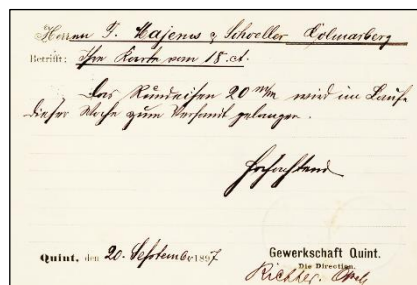 Herrn F. Majerus & Schoeller Colmarberg
Betrifft: Ihre Karte vom 18. ct.
Das Rundeisen 20 m/m wird im Laufe
dieser Woche zum Versandt gelangen.
Hochachtend
Quint, den 20. September 1897
Gewerkschaft Quint.
Die Direction.
Richter.